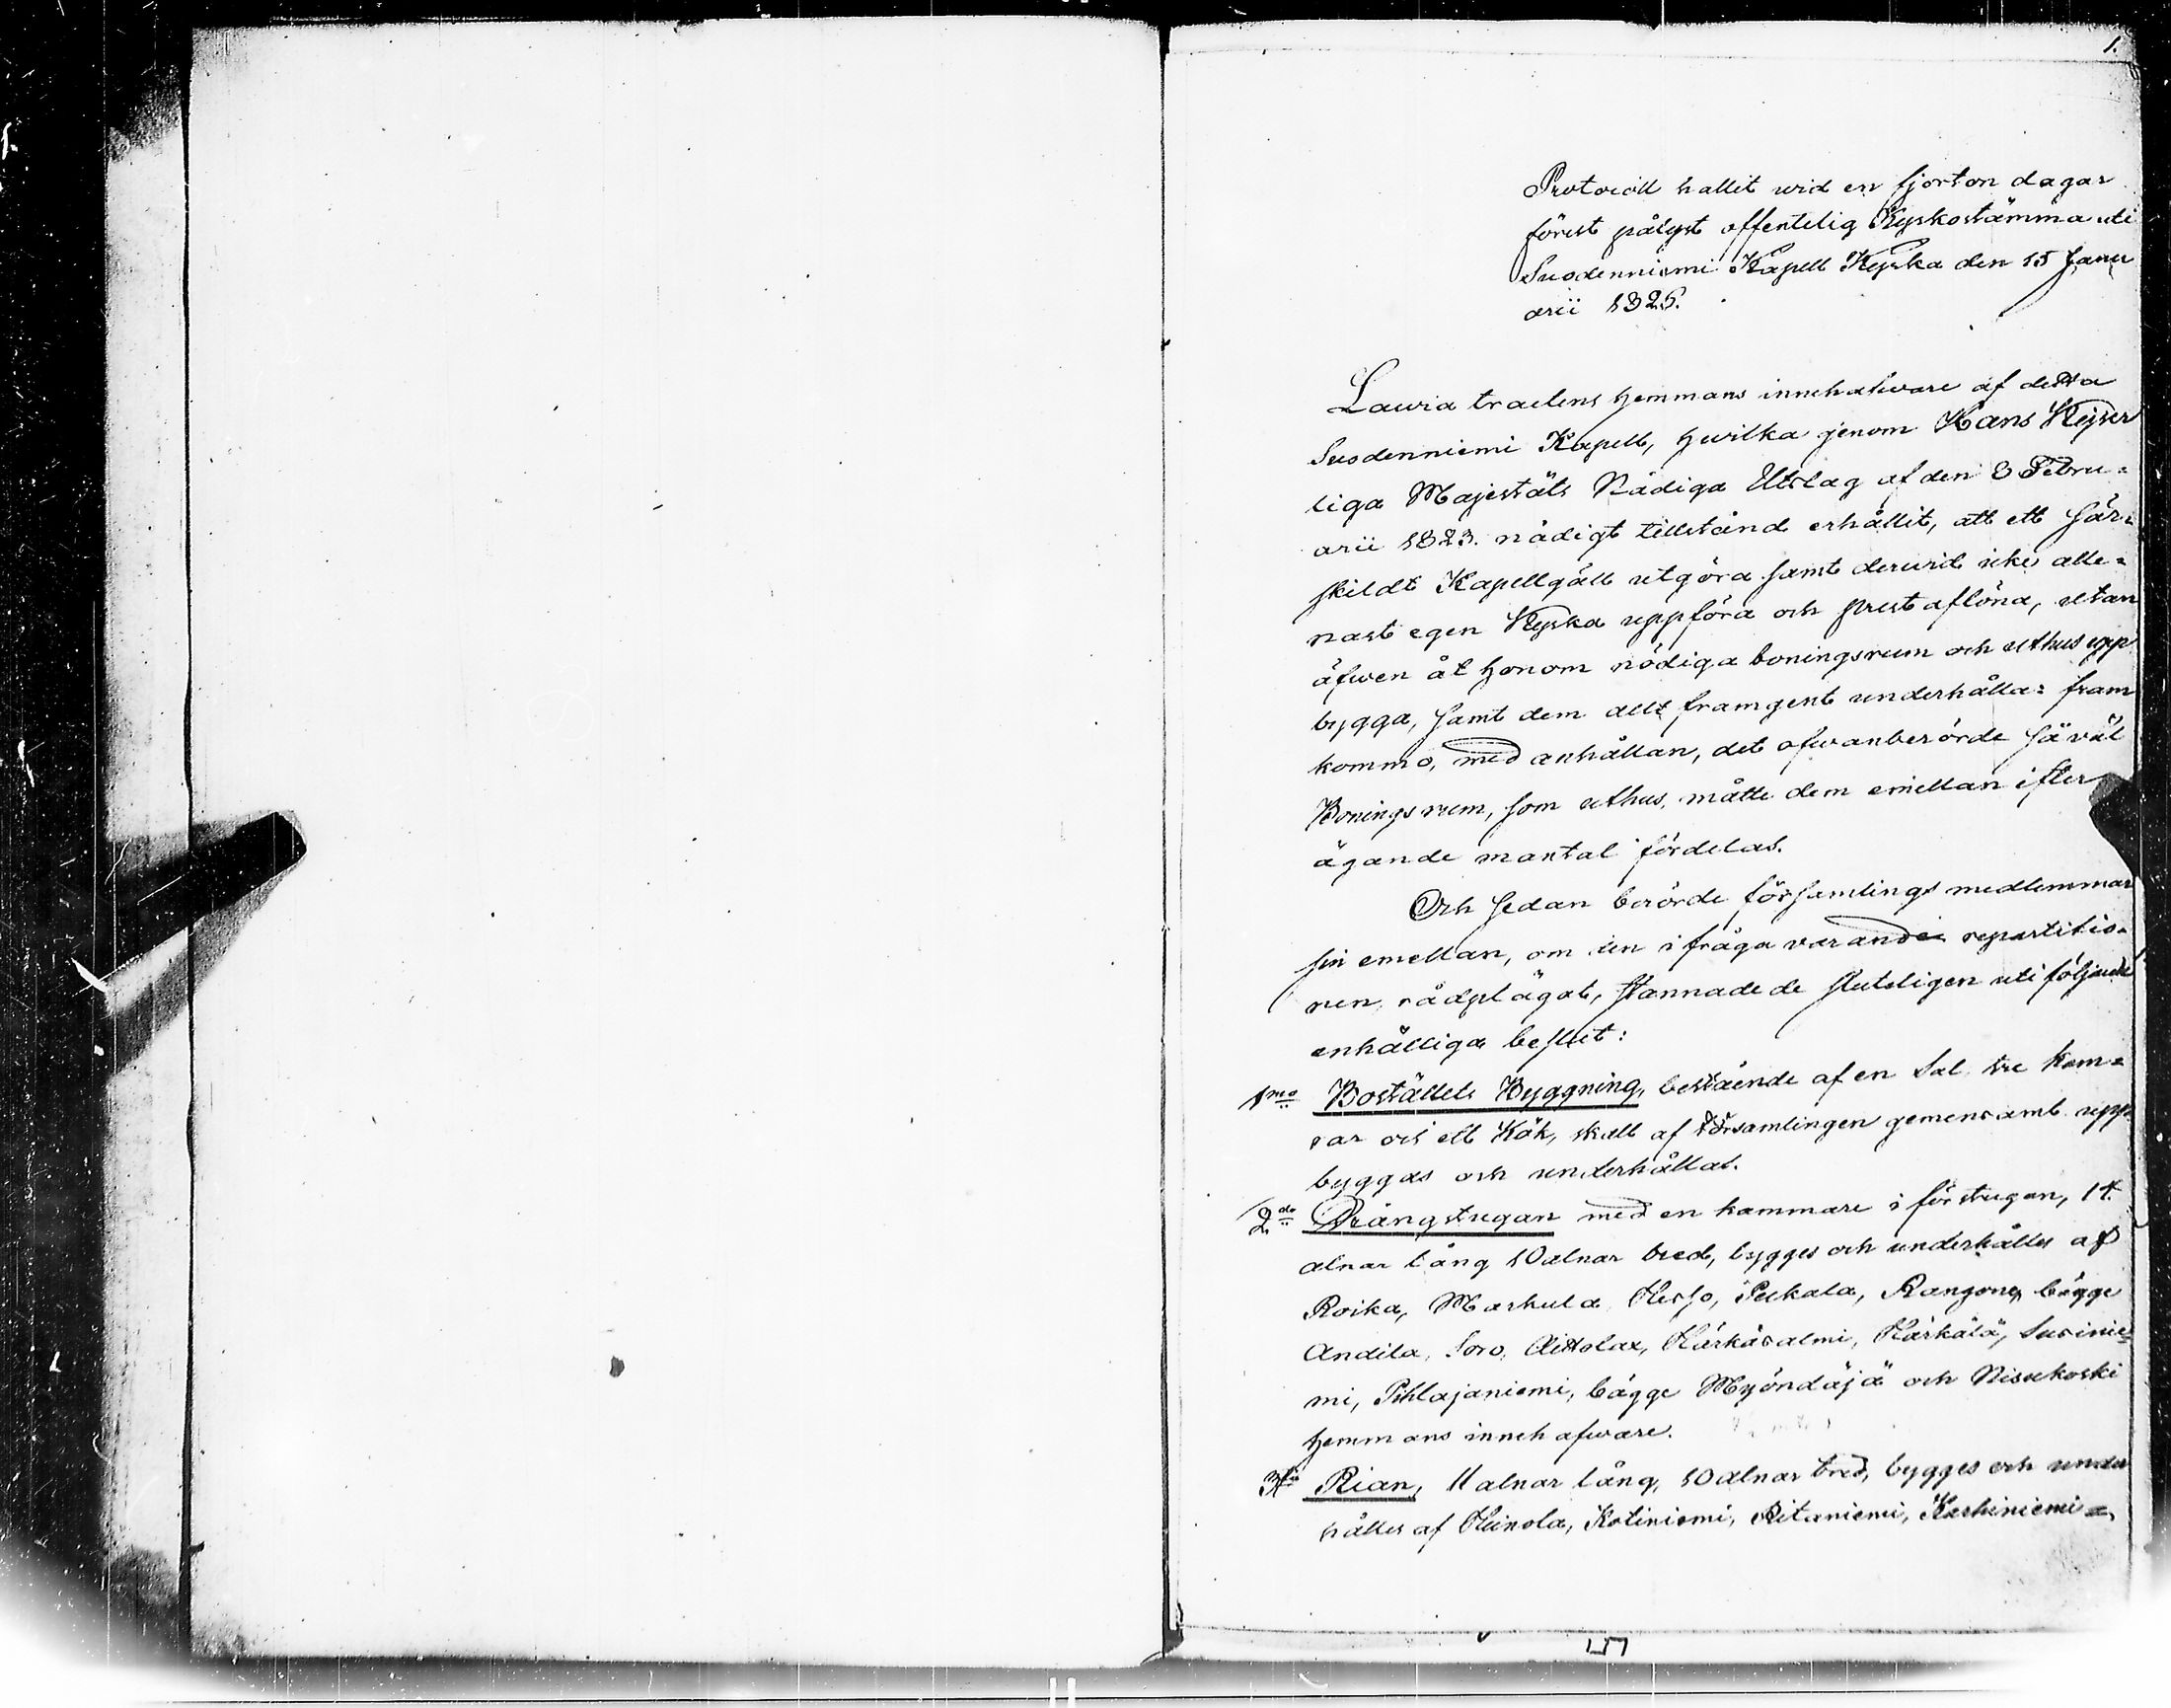 1.
Protocoll hallit wid en fjorton dagar
förest pålyst offentelig Kyrkostämma uti
Suodenniemi Kapell Kyrka den 15 Janu
arii 1826.
Lawia tractens hemmans innehafware af dessa
Suodenniemi Kapell, hwilka genom Hans Kejser
liga Majestäts Nådiga Utslag af den 8 Febru=
arii 1823. nådigt tillstånd erhållit, att ett sär=
skildt Kapellgäll utgöra samt derwid icke alle=
nast egen Kyrka uppföra och prest aflöna, utan
äfwen åt honom nödiga boningsrum och uthus upp
bygga, samt dem allt framgent underhålla: fram
kommo, med anhållan, det ofwanberörde såväl
Boningsrum, som uthus, måtte dem emellan efter
ägande mantal fördelas.
Och sedan berörde församlings medlemmar
sin emellan, om den i fråga varande repartitio=
nen, rådplägat, stannade de sluteligen uti följande
enhälliga beslut:
1mo Boställets Byggning, bestående af en Sal tre kam=
rar och ett Kök, skall af Församlingen gemensamt upp=
byggas och underhållas.
2do Drängstugan med en kammare i förstugan, 14
alnar lång 10 alnar bred, bygges och underhålles af
Roika, Markula, Heiso, Peltala, Rangone, bägge
Andila, Soro, Aittolax, Kärkäsalmi, Kärkälä, Susinie=
mi, Pihlajaniemi, bägge Myöndäjä och Nisukoski
hemmans innehafware.
3tio Rian, 11 alnar lång, 10 alnar bred, bygges och under
hålles af Heinola, Kotiniemi, Ritaniemi, Karhiniemi=